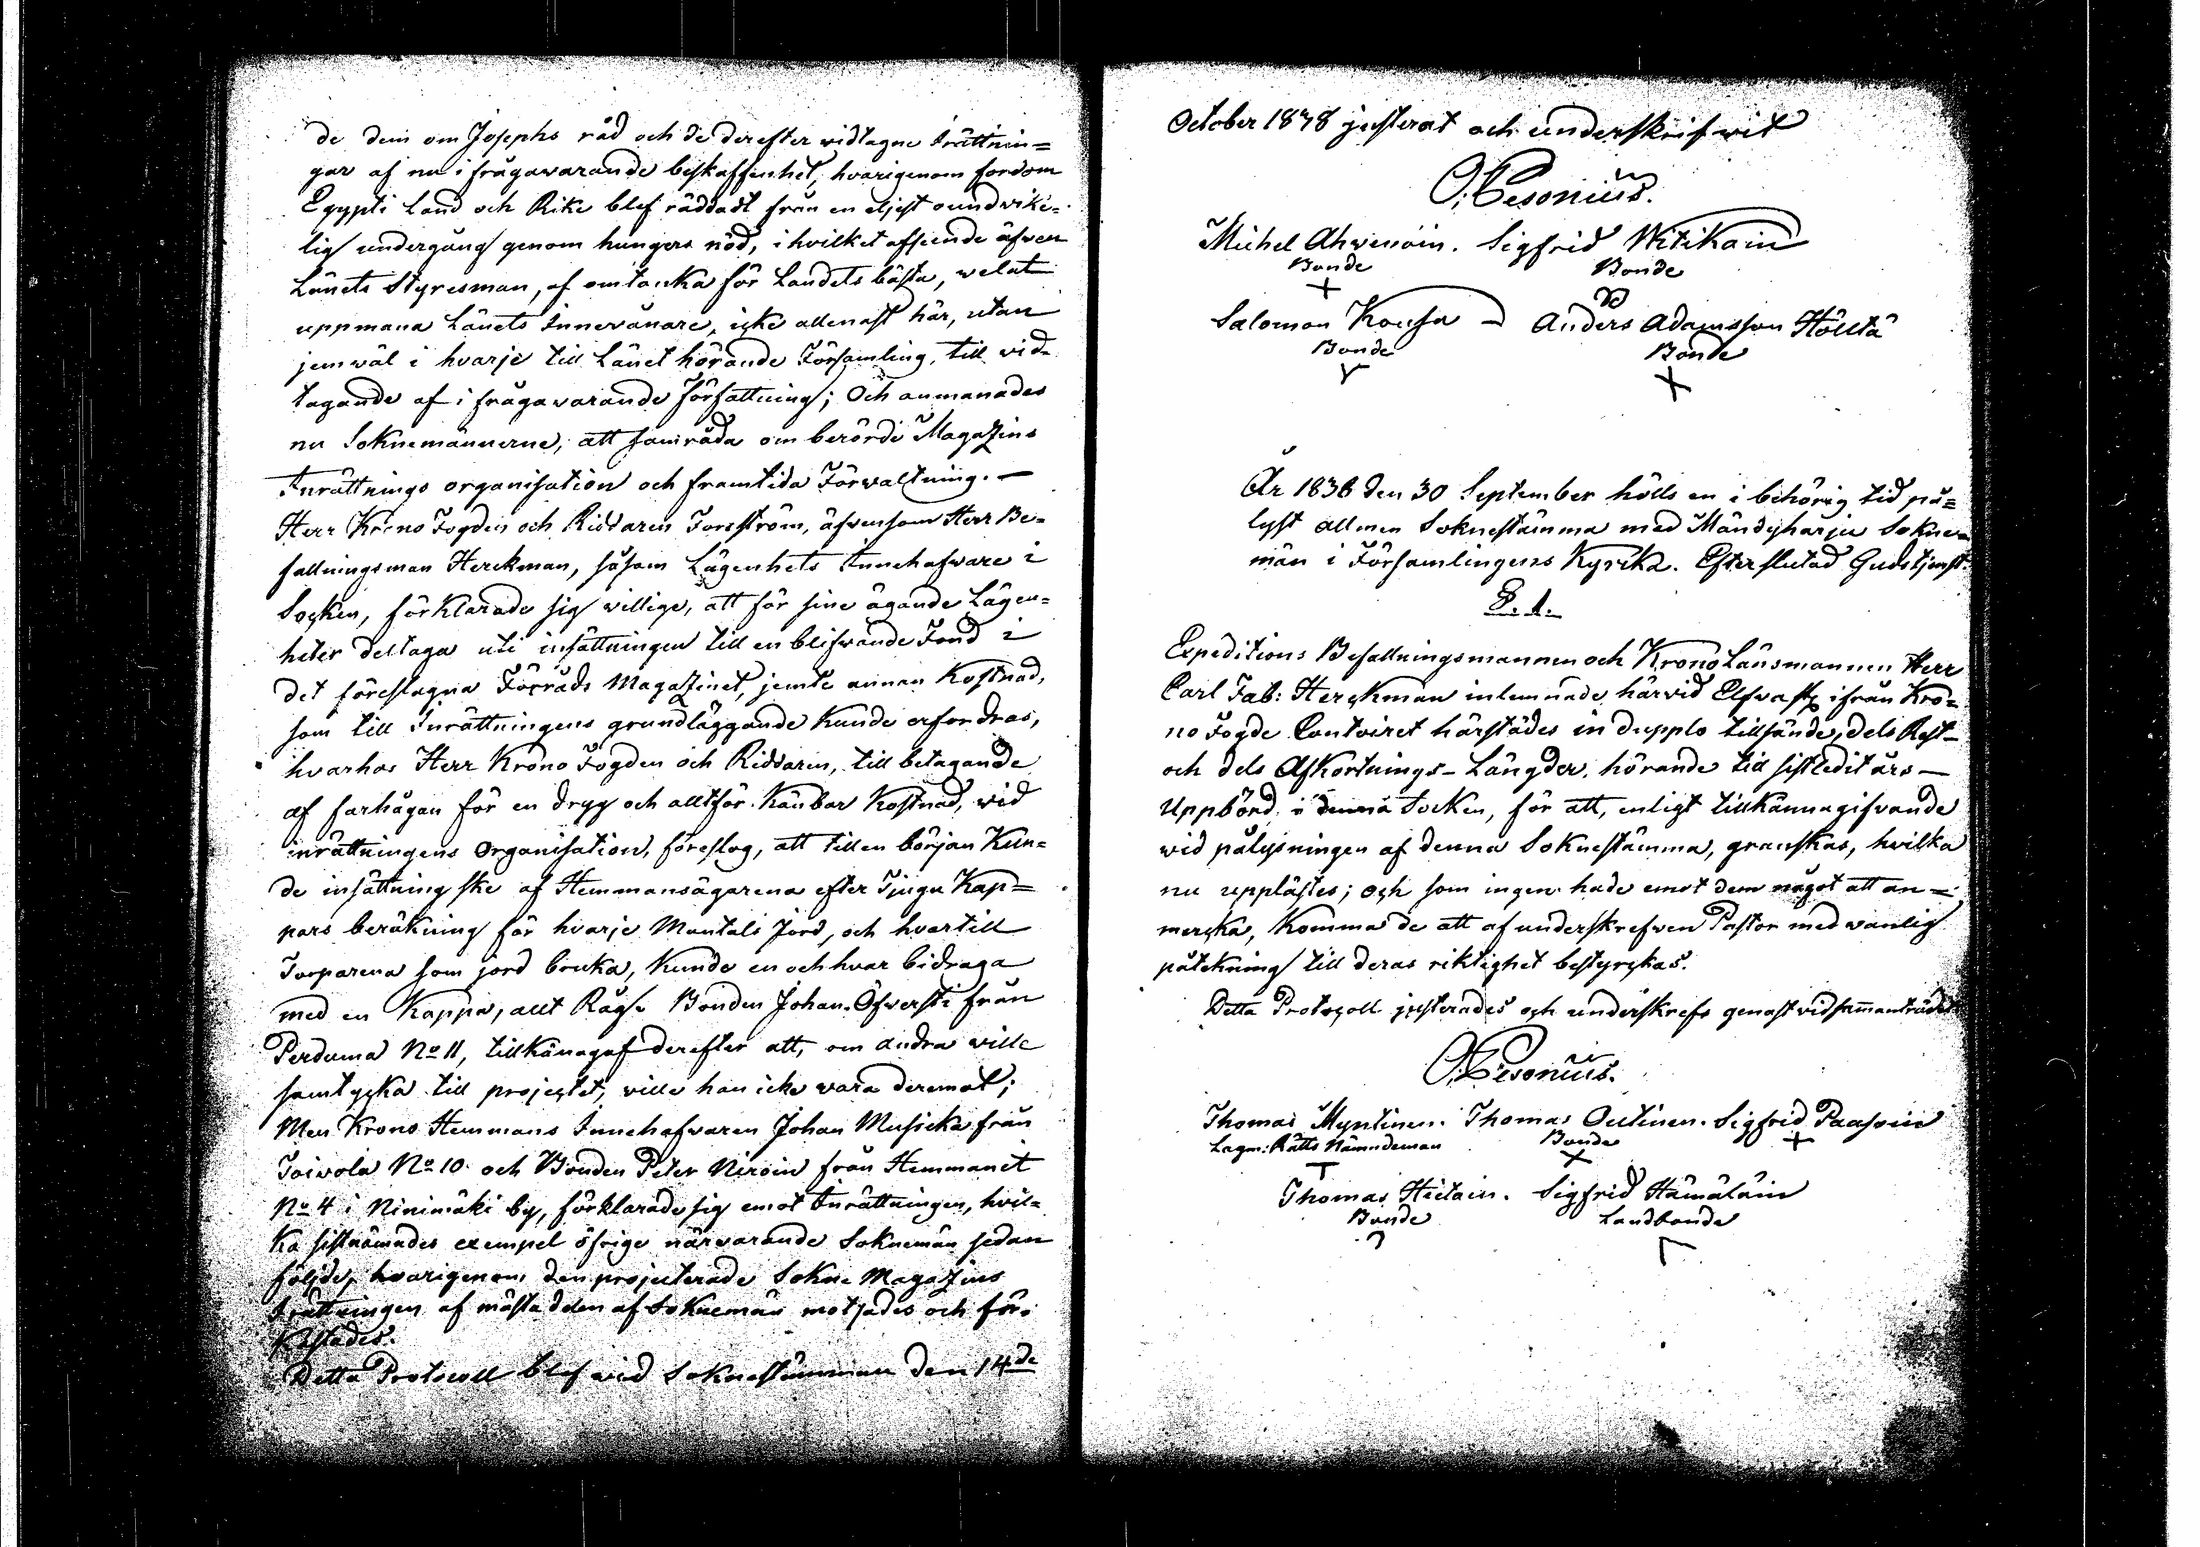 de dem om Josephs råd och de derefter vidtagne Inrättnin=
gar af nu i frågavarande beskaffenhet, hvarigenom fordom
Egypti Land och Rike blef räddadt från en eljest oundvike=
lig undergång genom hungers nöd, i hvilket afseende äfven
Länets Styresman, af omtanka för Landets bästa, welat
uppmana Länets Innevånare, icke allenast här, utan
jemwäl i hvarje till Länet hörande Församling, till vid-
tagande af i frågavarande författning; Och anmanades
nu Soknemännerne, att samråda om berörde Magazins
Inrättnings organisation och framtida Förwaltning. —
Herr Krono Fogden och Riddaren Forsström, äfvensom Herr Be-
fallningsman Herckman, såsom Lägenhets Innehafware i
Socken, förklarade sig willige, att för sine ägande Lägen=
heter deltaga uti insättningen till en blifwande Fond i
det föreslagna Förråds Magazinet, jemte annan Kostnad,
som till Inrättningens grundläggande kunde erfordras,
hvarhos Herr Krono Fogden och Riddaren, till betagande
af farhågan för en dryg och alltför känbar Kostnad, wid
inrättningens Organisation, föreslog, att till en början kun=
de insättning ske af Hemmansägarena efter Tjugu Kap=
pars beräkning för hvarje Mantals Jord, och hvartill
Torparena som jord bruka, kunde en och hvar bidraga
med en Kappa, allt Råg. Bonden Johan Öfwersti från
Perduma No 11, tillkännagaf derefter att, om andra wille
samtycka till projectet, wille han icke vara deremot;
Men Krono Hemmans Innehafvaren Johan Musicka från
Toiwola No 10 och Bonden Peter Niroin från Hemmanet
No 4 i Ninimäki by, förklarade sig emot Inrättningen, hvil=
ka sistnämndes exempel öfrige närvarande Soknemän sedan
följde, hvarigenom den projecterade Sokne Magazins
Inrättningen af mästa delen af Soknemän motsades och för-
kastades.
Detta Protocoll blef wid Soknestämman den 14de
October 1838 justerat och underskrifwit
O. Cesonius.
Michel Ahwenoin. Sigfrid Witikain
Bonde Bonde
Salomon Kousa Anders Adamsson Hölltä
Bonde Bonde
År 1838 den 30 September hölls en i behörig tid på=
lyst allmen Soknestämma med Mändyharju Sokne-
män i Församlingens Kyrcka. Efter slutad Gudstjenst.
S. d.
Expeditions Befallningsmannen och Krono Länsmannen Herr
Carl Fab: Herckman inlemnade härvid ifrån Kro=
no Fogde Contoiret härstädes in dupplo tillsände, dels Rest-
och dels Afkortnings-Längder, hörande till sistledit års —
Uppbörd i denna Socken, för att, enligt tillkännagifvande
wid pålysningen af denna Soknestämma, granskas, hvilka
nu upplästes; och som ingen hade emot dem något att an=
mercka, komma de att af underskrefwen Pastor med wanlig
påtekning till deras riktighet bestyrckas.
Detta Protocoll justerades och underskrefs genast vid sammanträdet
O. Cesonius.
Thomas Myntinen. Thomas Outinen. Sigfrid Paasoin
Lagm: Rätts Nämndeman Bonde
Thomas Hietain. Sigfrid Hämäläin
Bonde Landbonde